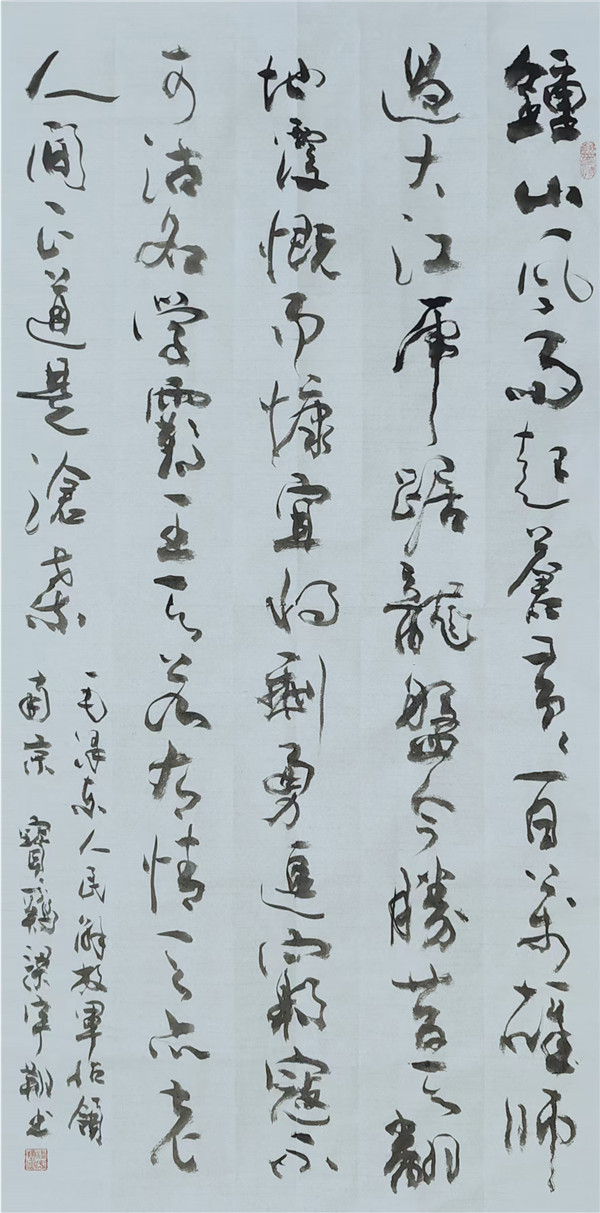 鍾山風雨起蒼黃百萬雄師
過大江虎踞龍盤今勝昔天翻
地覆慨而慷宜將剩勇追窮寇不
可沽名學霸王天若有情天亦老
人間正道是滄桑
毛澤東人民解放軍佔領
南京 寶鷄梁宇書